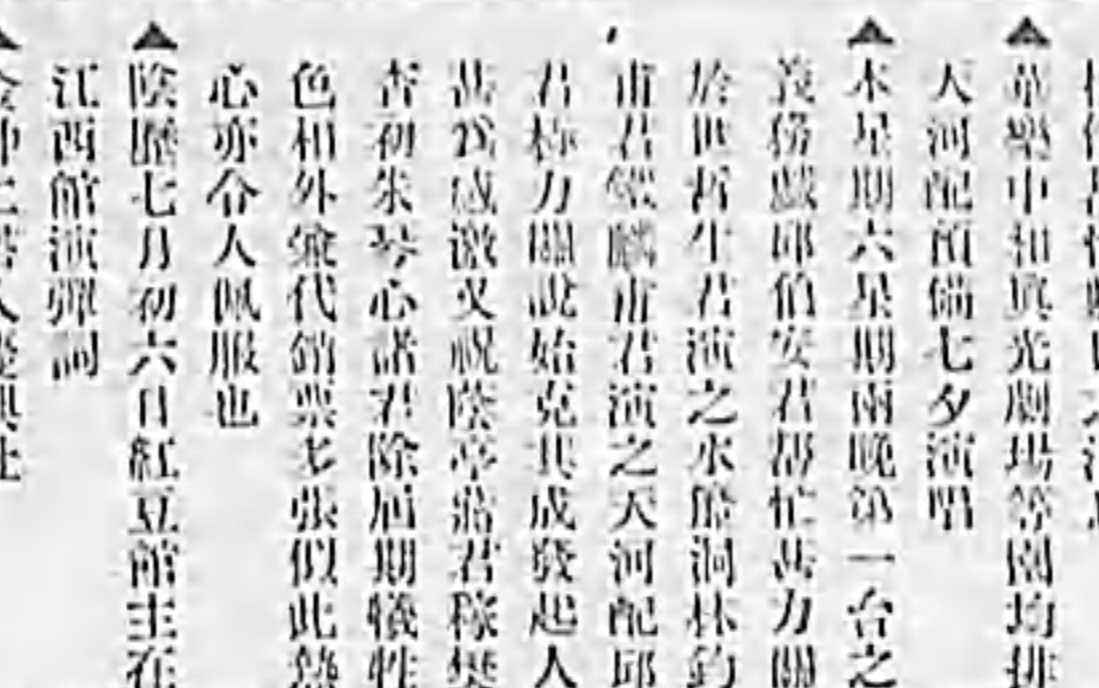 ▲華樂中和眞光劇塲等園均排
天河配預備七夕演唱
▲本星期六星期兩晚第一台之
義務戲邱伯安君帮忙甚力關
於世哲生君演之水簾洞林鈞
甫君 麟甫君演之天河配邱
君極力關說始克其成發起人
甚爲感激又祝蔭亭蔣君稼
杏初朱琴心諸君除屆期犧牲
色相外兼代銷票多張似此熱
心亦令人佩服也
▲陰曆七月初六日紅豆館主在
江西館演彈詞